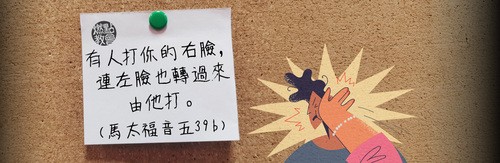 燃點
教會
有人打你的右臉，
連左臉也轉過來
由他打。
(馬太福音五39b)